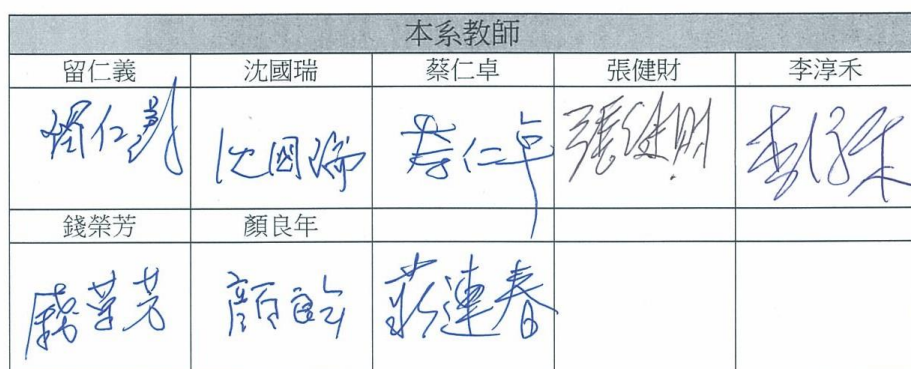 本系教師
留仁義 沈國瑞 蔡仁卓 張健財 李淳禾
留仁義 沈國瑞 蔡仁卓 張健財 李淳禾
錢榮芳 顏良年
錢榮芳 顏良年 連春